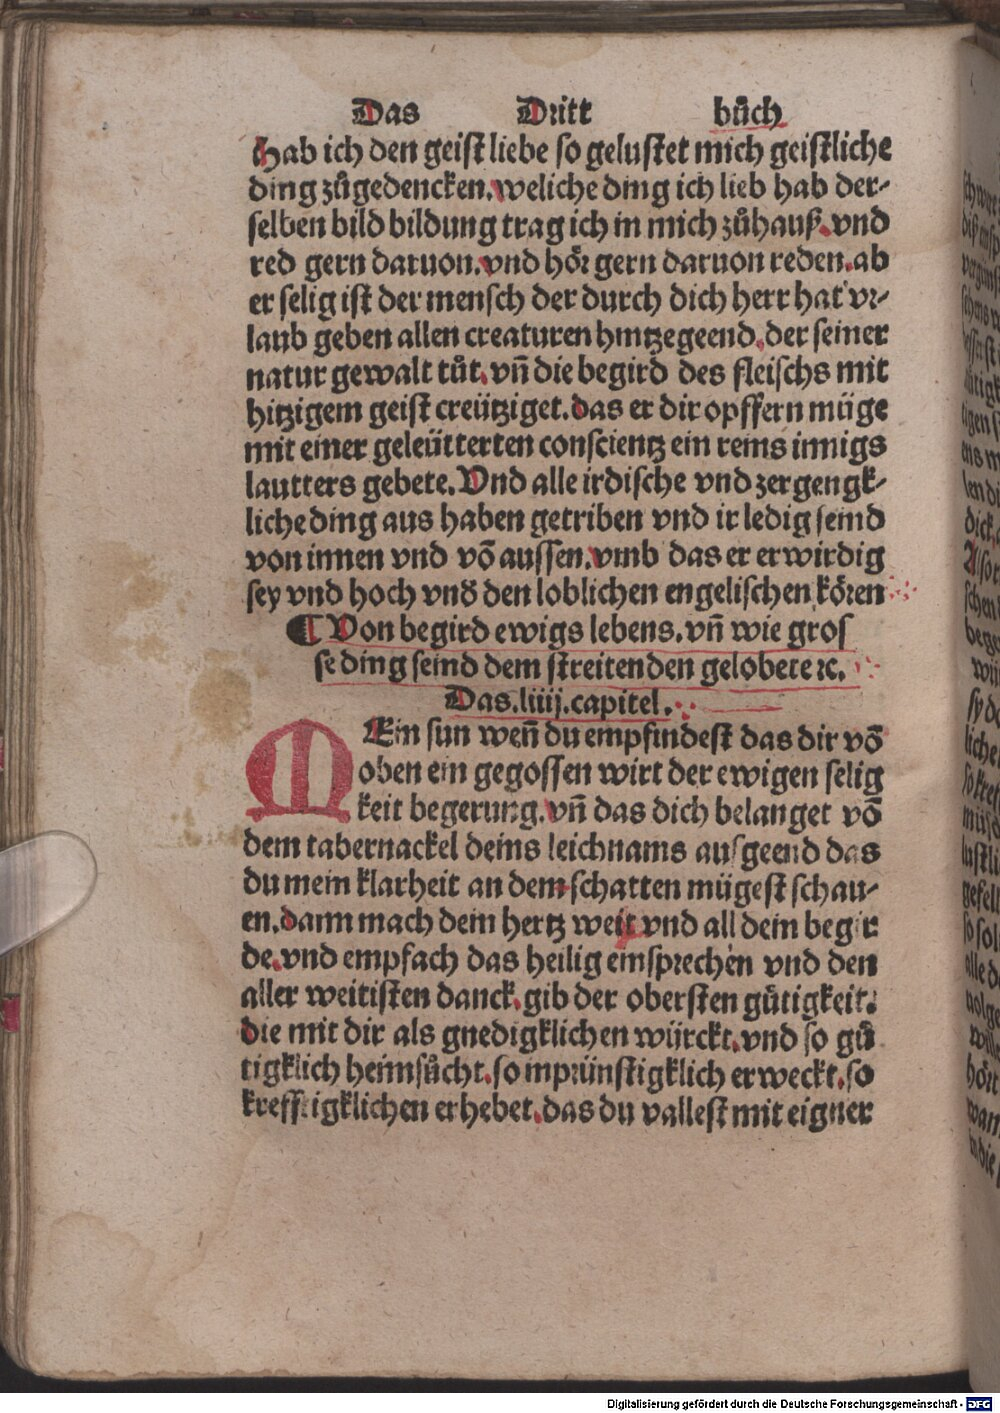 Das Dritt bůch
Hab ich den geist liebe so gelustet mich geistliche
ding zůgedencken. weliche ding ich lieb hab der-
selben bild bildung trag ich in mich zůhauß. vnd
red gern daruon. vnd hör gern daruon reden. ab
er selig ist der mensch der durch dich herr hat vr-
laub geben allen creaturen hintzegeend. der seiner
natur gewalt tůt. vn̄ die begird des fleischs mit
hitzigem geist creütziget. das er dir opffern müge
mit einer geleütterten conscientz ein reins innigs
lautters gebete. Vnd alle irdische vnd zergengk-
liche ding aus haben getriben vnd ir ledig seind
von innen vnd vō aussen. vmb das er erwirdig
sey vnd hoch vnd̄ den loblichen engelischen kören
¶ Von begird ewigs lebens. vn̄ wie gros
se ding seind dem streitenden gelobete ⁊c.
Das. liiij. capitel.
MEin sun wen̄ du empfindest das dir vō
oben ein gegossen wirt der ewigen selig
keit begerung. vn̄ das dich belanget vō
dem tabernackel deins leichnams ausgeend das
du mein klarheit an dem schatten mügest schau-
en. dann mach dein hertz weit vnd all dein begir
de. vnd empfach das heilig einsprechen vnd den
aller weitisten danck. gib der obersten gütigkeit.
die mit dir als gnedigklichen würckt. vnd so gů
tigklich heimsůcht. so inprünstigklich erweckt. so
krefftigklichen erhebet. das du vallest mit eigner
Digitalisierung gefördert durch die Deutsche Forschungsgemeinschaft - DFG